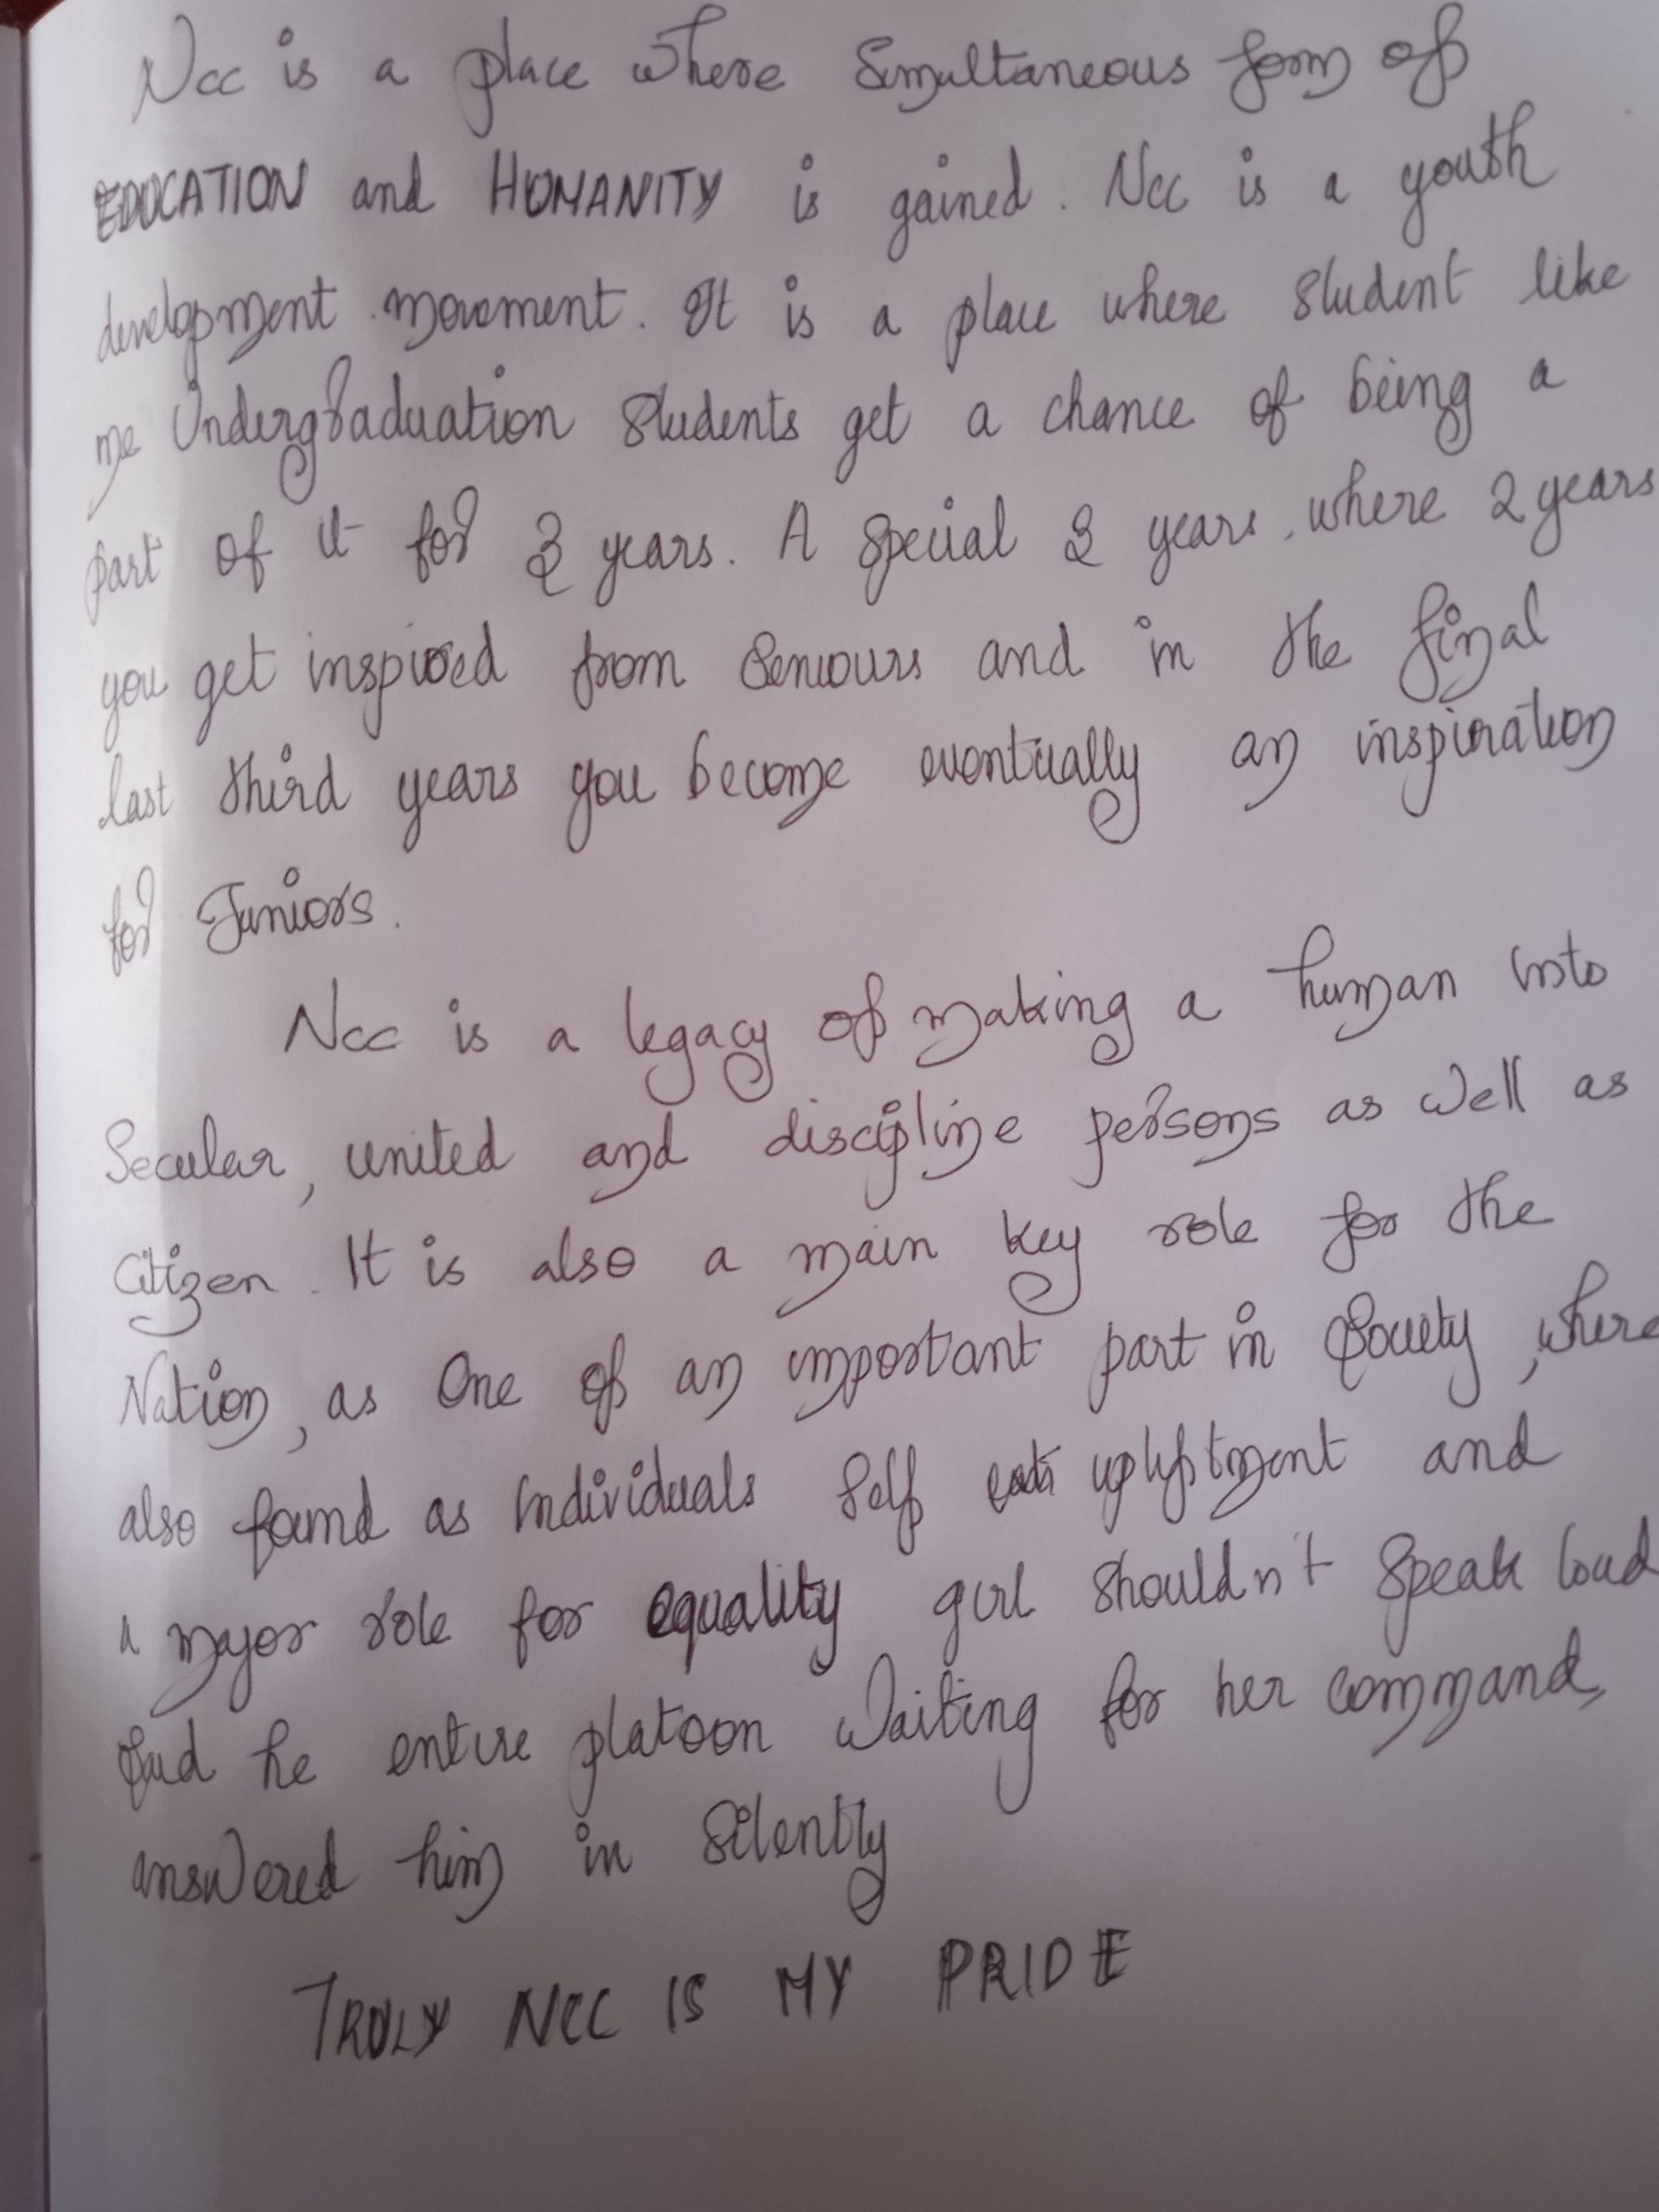 Ncc is a place where Simultaneous form of
EDUCATION and HUMANITY is gained. Ncc is a youth
development movement. It is a place where student like
me Undergraduation students get a chance of being a
part of it for 3 years. A special 3 years, where 2 years
you get inspired from Seniours and in the final
last third years you become eventually an inspiration
for Juniors.
Ncc is a legacy of making a human into
Secular, united and discipline persons as well as
Citizen. It is also a main key role for the
Nation, as One of an important part in Society, where
also found as individuals self upliftment and
a major role for equality girl shouldn't speak loud
said he entire platoon waiting for her command,
answered him in Silently
TRULY NCC IS MY PRIDE